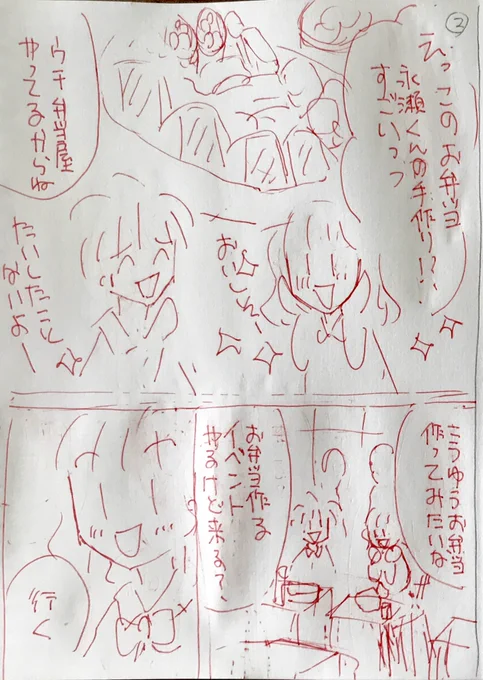 ②
えっこのお弁当
永瀬くんの手作り!?
すごいっっ
ウチ弁当屋
やってるからね
おいしそー
たいしたこと
ないよー
こうゆうお弁当
作ってみたいな
お弁当作る
イベント
やるけど来る?
行く